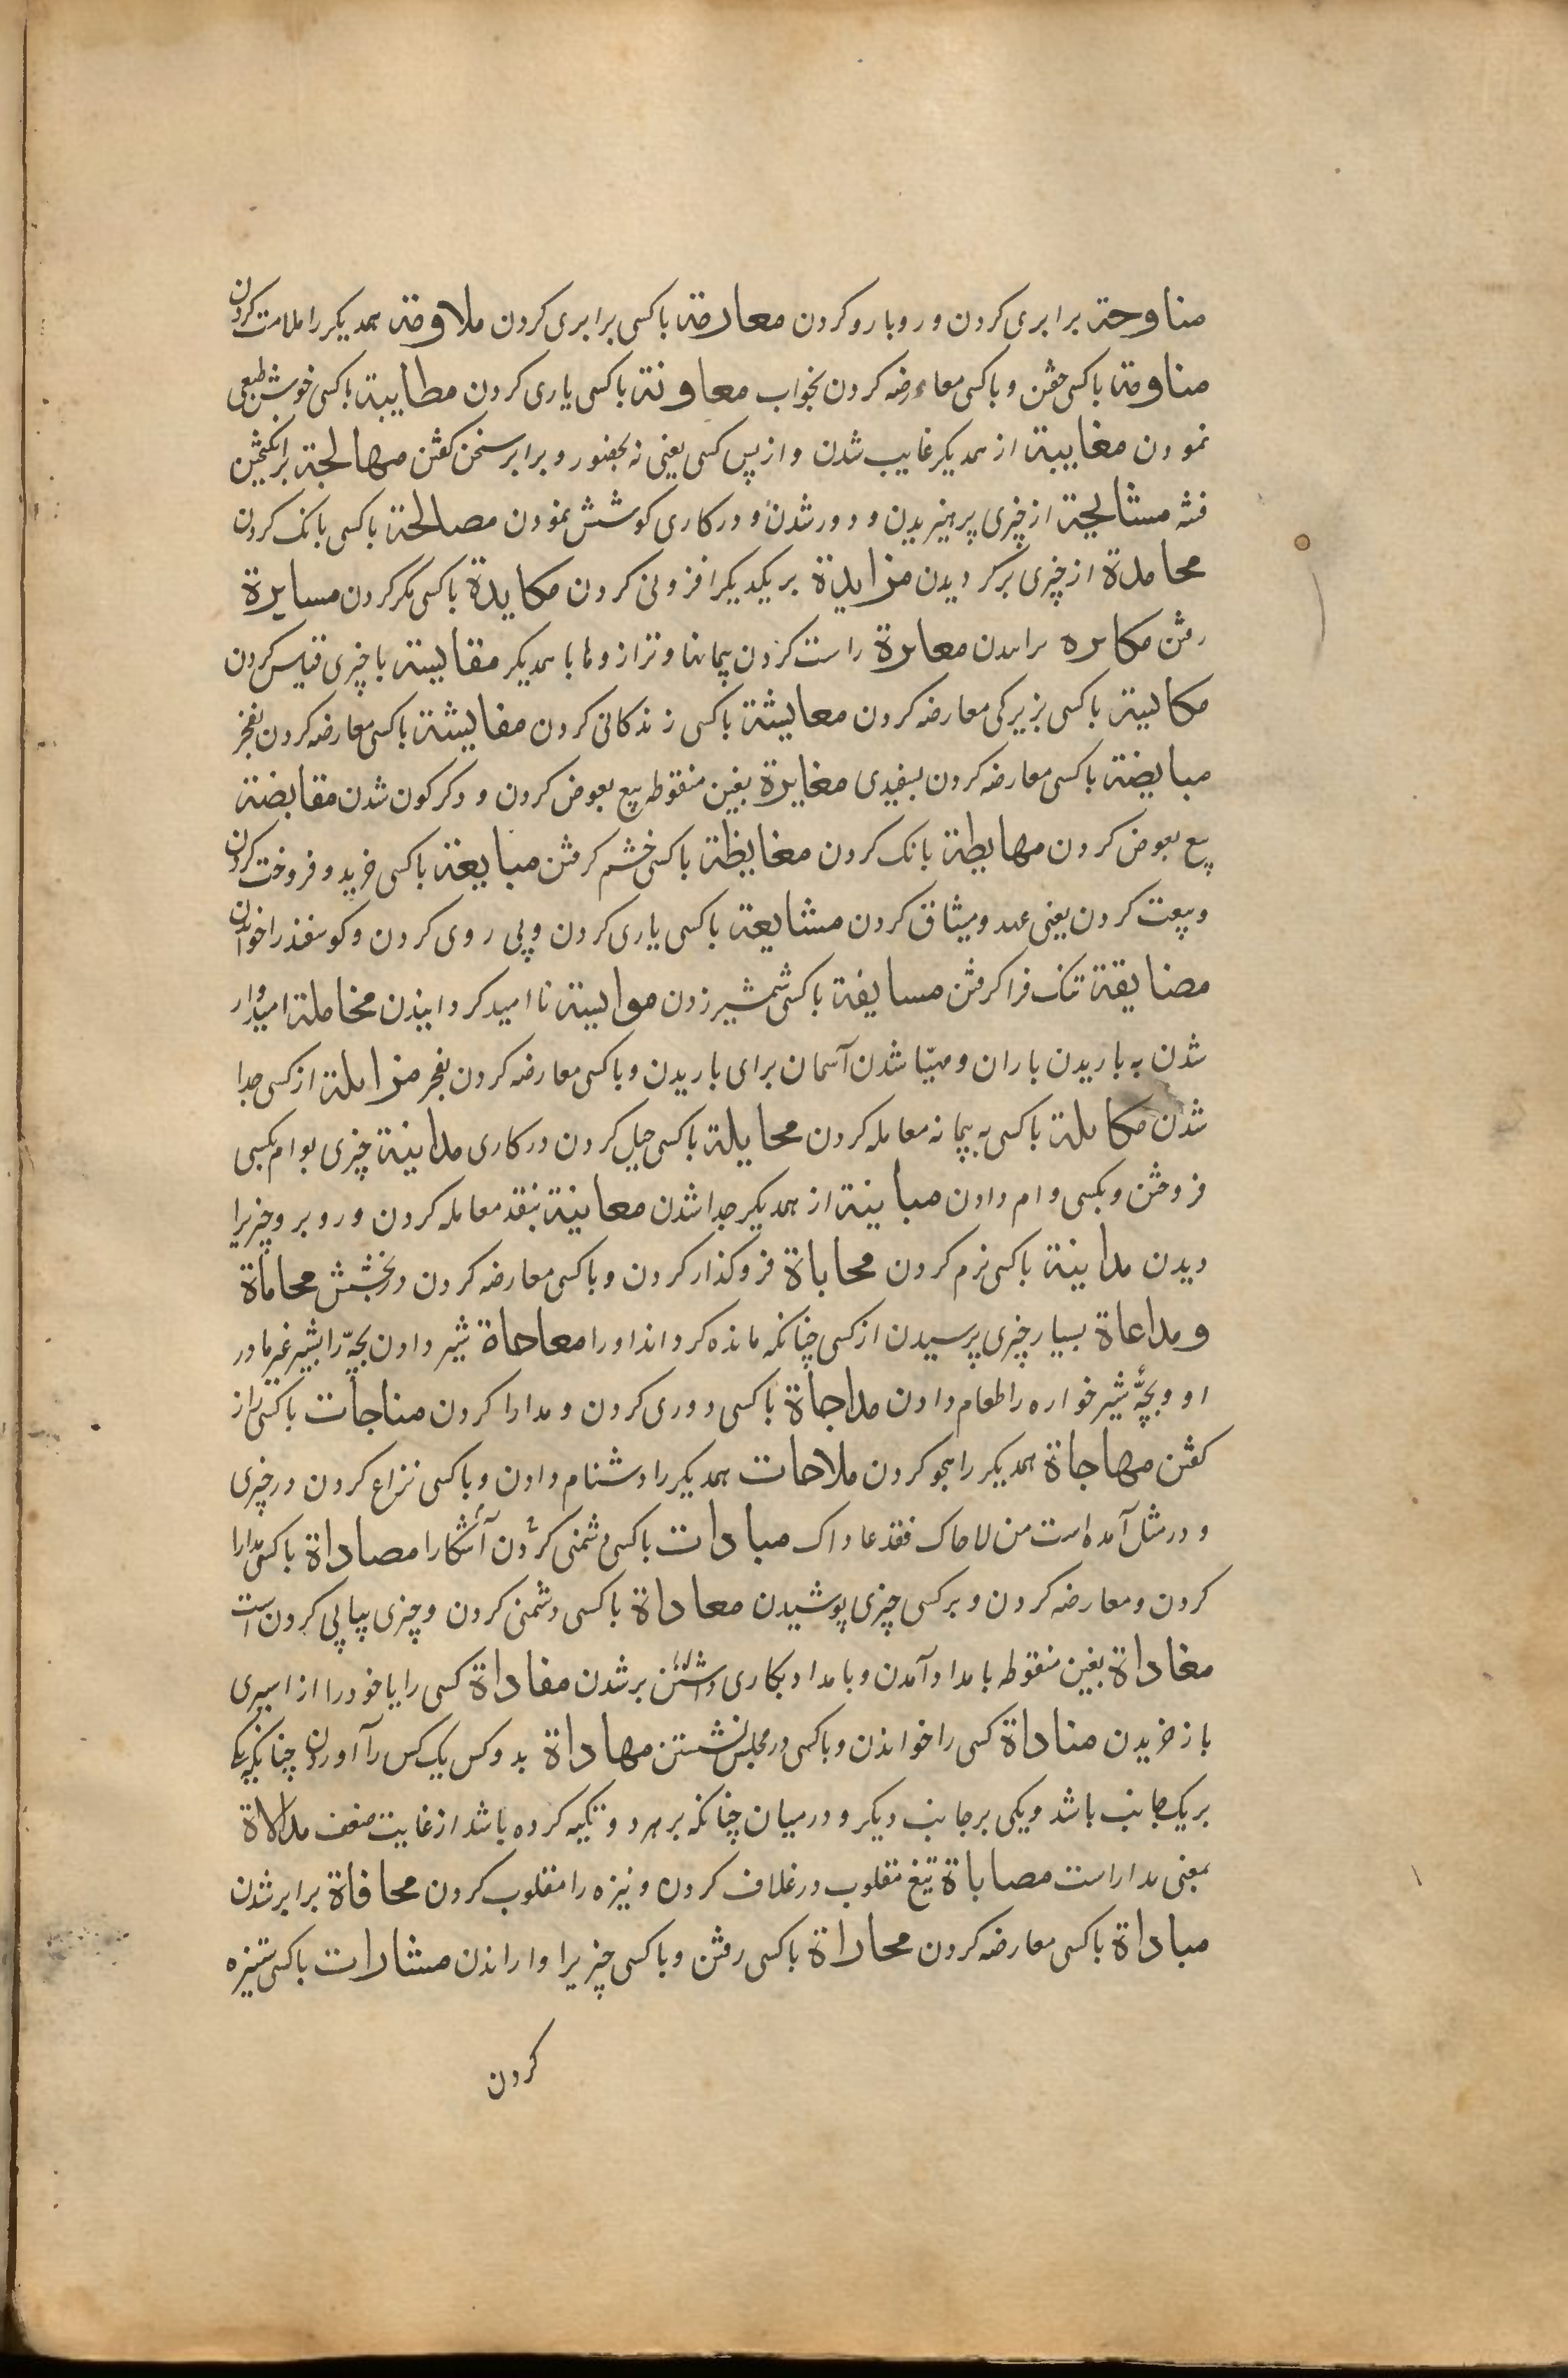 مناوحة برابری کردن و روبارو کردن معارضة باکسی برابری کردن ملاومة همدیکر را ملامت کردن
مناومة باکسی خفتن و باکسی معارضه کردن بخواب معاونة باکسی یاری کردن مطایبة باکسی خوش طبعی
نمودن مغایبة از همدیکر غایب شدن و از پس کسی یعنی نه بحضور و برابر سخن کفتن مهایجة برانکیختن
فتنه مشایحة از چیزی پرهیزیدن و دور شدن و در کاری کوشش نمودن مصایحة باکسی بانک کردن
محایدة از چیزی برکردیدن مزایدة بر یکدیکر افزونی کردن مکایدة باکسی مکر کردن مسایرة
رفتن مکابره معایرة راست کردن پیمانها و ترازوها با همدیکر مقایسة با چیزی قیاس کردن
مکایسة باکسی بزیرکی معارضه کردن معایشة باکسی زندکانی کردن مفایشة باکسی معارضه کردن بفخر
مبایضة باکسی معارضه کردن بسفیدی مغایرة بغین منقوطه بیع بعوض کردن و دکرکون شدن مقایضة
بیع بعوض کردن مهایطة بانک کردن مغایظة باکسی خشم کرفتن مبایعة باکسی خرید و فروخت کردن
و بیعت کردن یعنی عهد و میثاق کردن مشایعة باکسی یاری کردن و پی روی کردن و کوسفند را خواندن
مضایقة تنک فرا کرفتن مسایفة باکسی شمشیر زدن موایسة نا امید کردانیدن مخاملة امیدوار
شدن به باریدن باران و مهیّا شدن آسمان برای باریدن و باکسی معارضه کردن بفخر مزایلة از کسی جدا
شدن مکایلة باکسی به پیمانه معامله کردن محایلة باکسی حیل کردن در کاری مداینة چیزی بوام بکسی
فروختن و بکسی وام دادن مباینة از همدیکر جدا شدن معاینة بنقد معامله کردن و روبرو چیزیرا
دیدن مداینة باکسی نرم کردن محاباة فرو کذار کردن و باکسی معارضه کردن در بخشش محاماة
و مداعاة بسیار چیزی پرسیدن از کسی چنانکه مانده کرداند او را معاجاة شیر دادن بچّه را بشیر غیر مادر
او و بچّۀ شیرخواره را طعام دادن مداجاة باکسی دوری کردن و مدارا کردن مناجات باکسی راز
کفتن مهاجاة همدیکر را هجو کردن ملاحات همدیکر را دشنام دادن و باکسی نزاع کردن در چیزی
و در مثل آمده است من لاحاک فقد عاداک مبادات باکسی دشمنی کردن آشکارا مصاداة باکسی مدارا
کردن و معارضه کردن و بر کسی چیزی پوشیدن معاداة باکسی دشمنی کردن و چیزی پیاپی کردن است
مغاداة بغین منقوطه بامداد آمدن و بامداد بکاری بر شدن مفاداة کسی را یا خود را از اسیری
باز خریدن مناداة کسی را خواندن و باکسی در مجلس نشستن مهاداة بدو کس یک کس را آوردن چنانکه یکی
بر یک جانب باشد و یکی بر جانب دیکر و در میان چنانکه بر هر دو تکیه کرده باشد از غایت ضعف مدالاة
بمعنی مداراست مصاباة تیغ مقلوب در غلاف کردن و نیزه را مقلوب کردن محافاة برابر شدن
مباداة باکسی معارضه کردن محاراة باکسی رفتن و باکسی چیزیرا وا راندن مشارات باکسی ستیزه
کردن